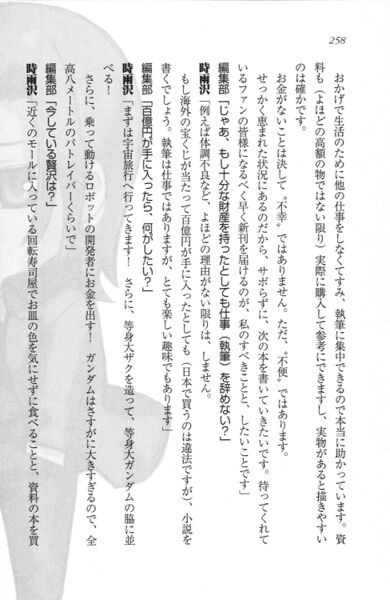 258
おかげで生活のために他の仕事をしなくてすみ、執筆に集中できるので本当に助かっています。資
料も（よほどの高額の物ではない限り）実際に購入して参考にできますし、実物があると描きやすい
のは確かです。
お金がないことは決して〝不幸〟ではありません。ただ、〝不便〟ではあります。
せっかく恵まれた状況にあるのだから、サボらずに、次の本を書いていきたいです。待ってくれて
いるファンの皆様になるべく早く新刊を届けるのが、私のすべきことと、したいことです」
編集部「じゃあ、もし十分な財産を持ったとしても仕事（執筆）を辞めない？」
時雨沢「例えば体調不良など、よほどの理由がない限りは、しません。
もし海外の宝くじが当たって百億円が手に入ったとしても（日本で買うのは違法ですが）、小説を
書くでしょう。執筆は仕事ではありますが、とても楽しい趣味でもあります」
編集部「百億円が手に入ったら、何がしたい？」
時雨沢「まずは宇宙旅行へ行ってきます！　さらに、等身大ザクを造って、等身大ガンダムの脇に並
べる！
さらに、乗って動けるロボットの開発者にお金を出す！　ガンダムはさすがに大きすぎるので、全
高八メートルのパトレイバーくらいで」
編集部「今している贅沢は？」
時雨沢「近くのモールに入っている回転寿司屋でお皿の色を気にせずに食べることと、資料の本を買